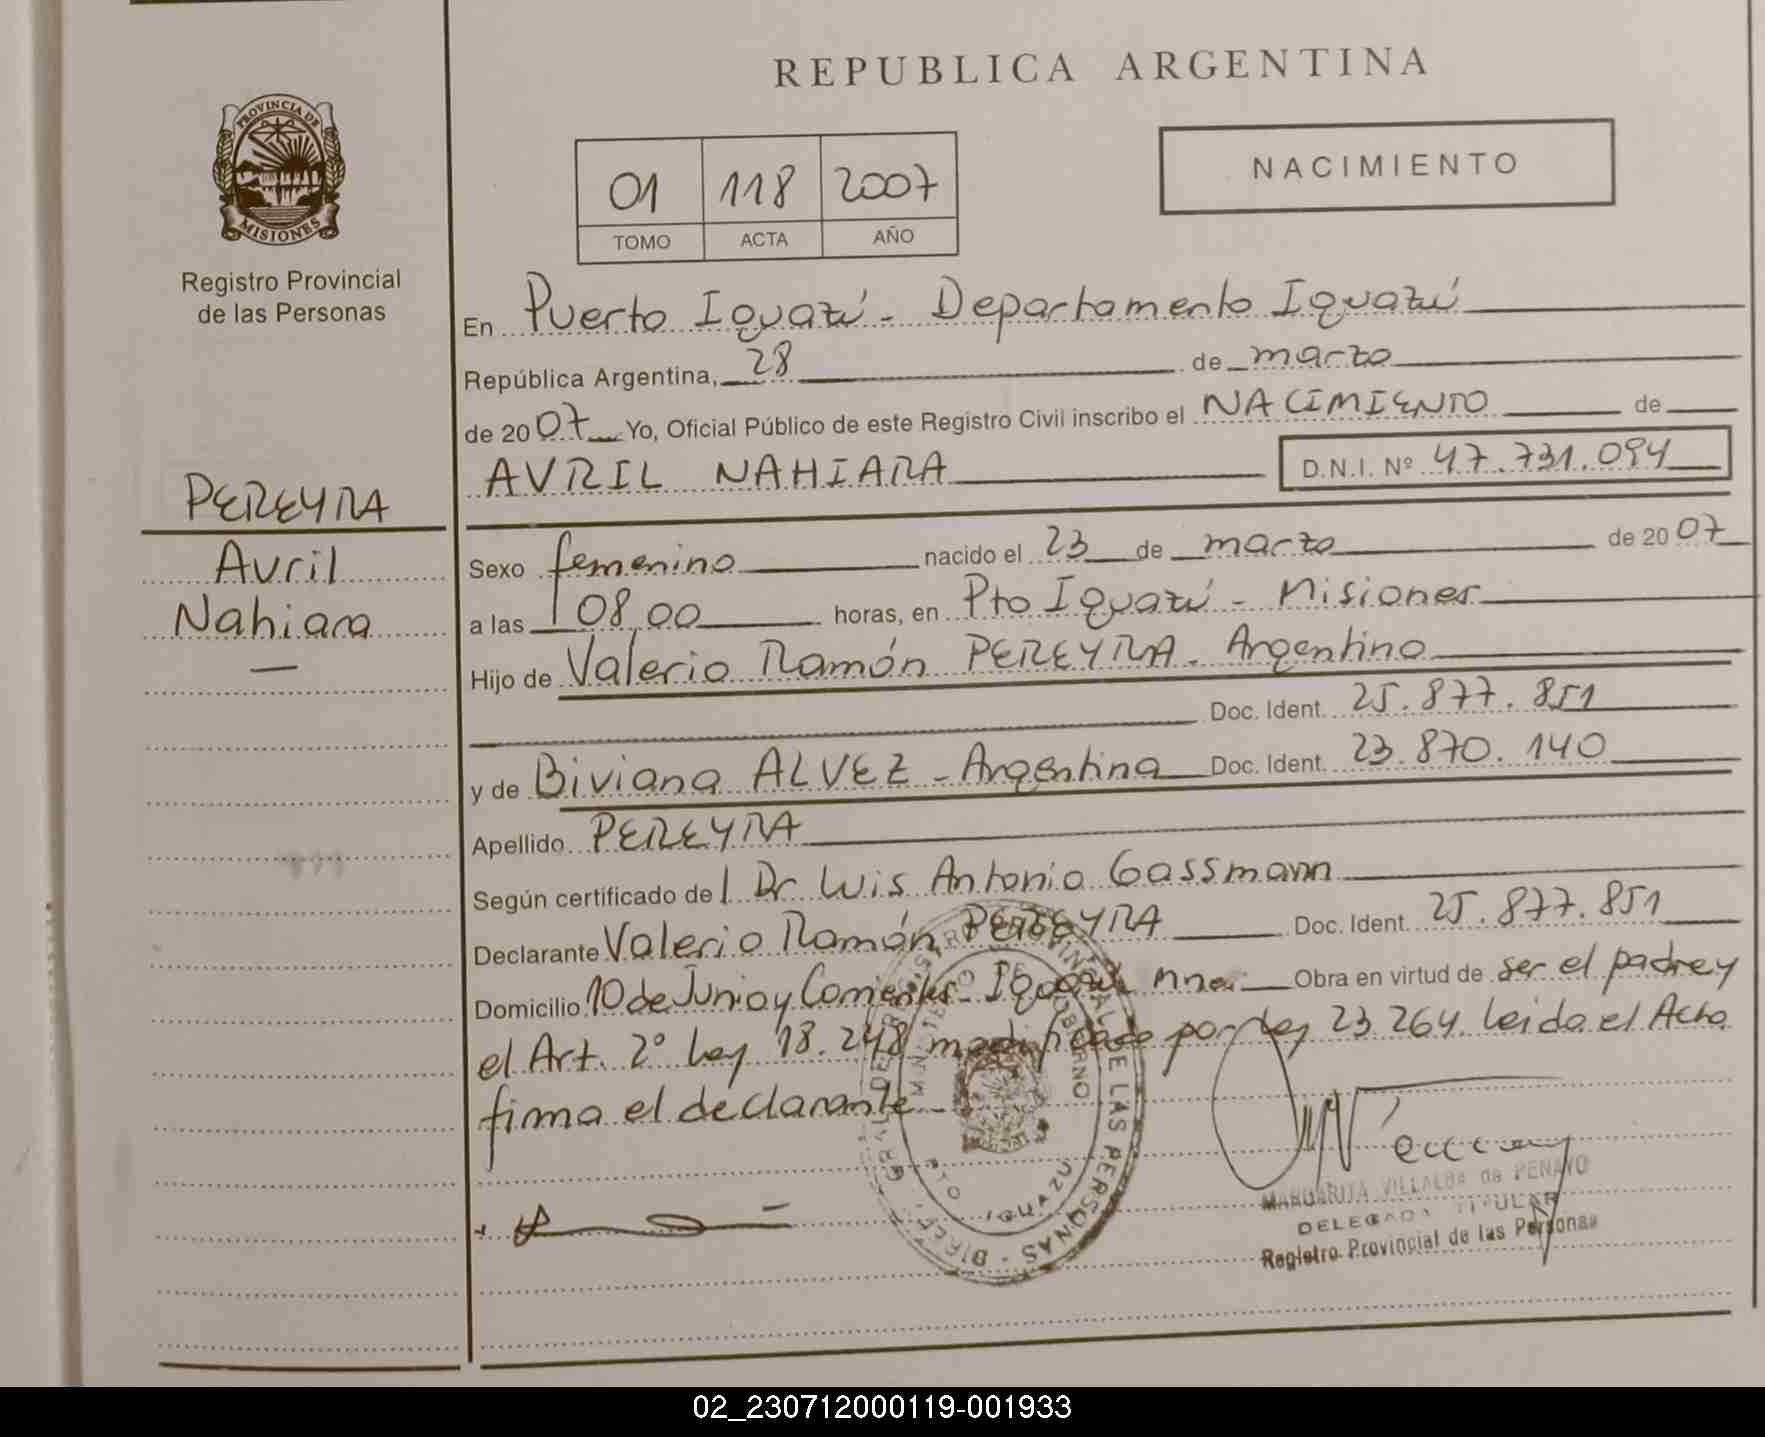 REPUBLICA ARGENTINA
PROVINCIA DE
MISIONES
Registro Provincial
de las Personas
NACIMIENTO
01 118 2007
TOMO ACTA AÑO
PEREYRA
Avril
Nahiara
—
En Puerto Iguazú - Departamento Iguazú
República Argentina, 28 de marzo
de 2007 Yo, Oficial Público de este Registro Civil inscribo el NACIMIENTO de
AVRIL NAHIARA D.N.I. Nº 47.731.094
Sexo femenino nacido el 23 de marzo de 2007
a las 08,00 horas, en Pto Iguazú - Misiones
Hijo de Valerio Ramón PEREYRA. Argentino
Doc. Ident. 25.877.851
y de Biviana ALVEZ - Argentina Doc. Ident. 23.870.140
Apellido PEREYRA
Según certificado del Dr Luis Antonio Gassmann
Declarante Valerio Ramón PEREYRA Doc. Ident. 25.877.851
Domicilio 10 de Junio y Corrientes - Iguazú Mnes. Obra en virtud de ser el padre y
el Art. 2º Ley 18.248 modificado por Ley 23.264. Leida el Acta
firma el declarante
DIREC. GRAL. DE REGISTRO PROVINCIAL DE LAS PERSONAS
MINISTERIO DE GOBIERNO
PTO IGUAZU
MARGARITA VILLALBA de PENAYO
DELEGADA TITULAR
Registro Provincial de las Personas
02_230712000119-001933